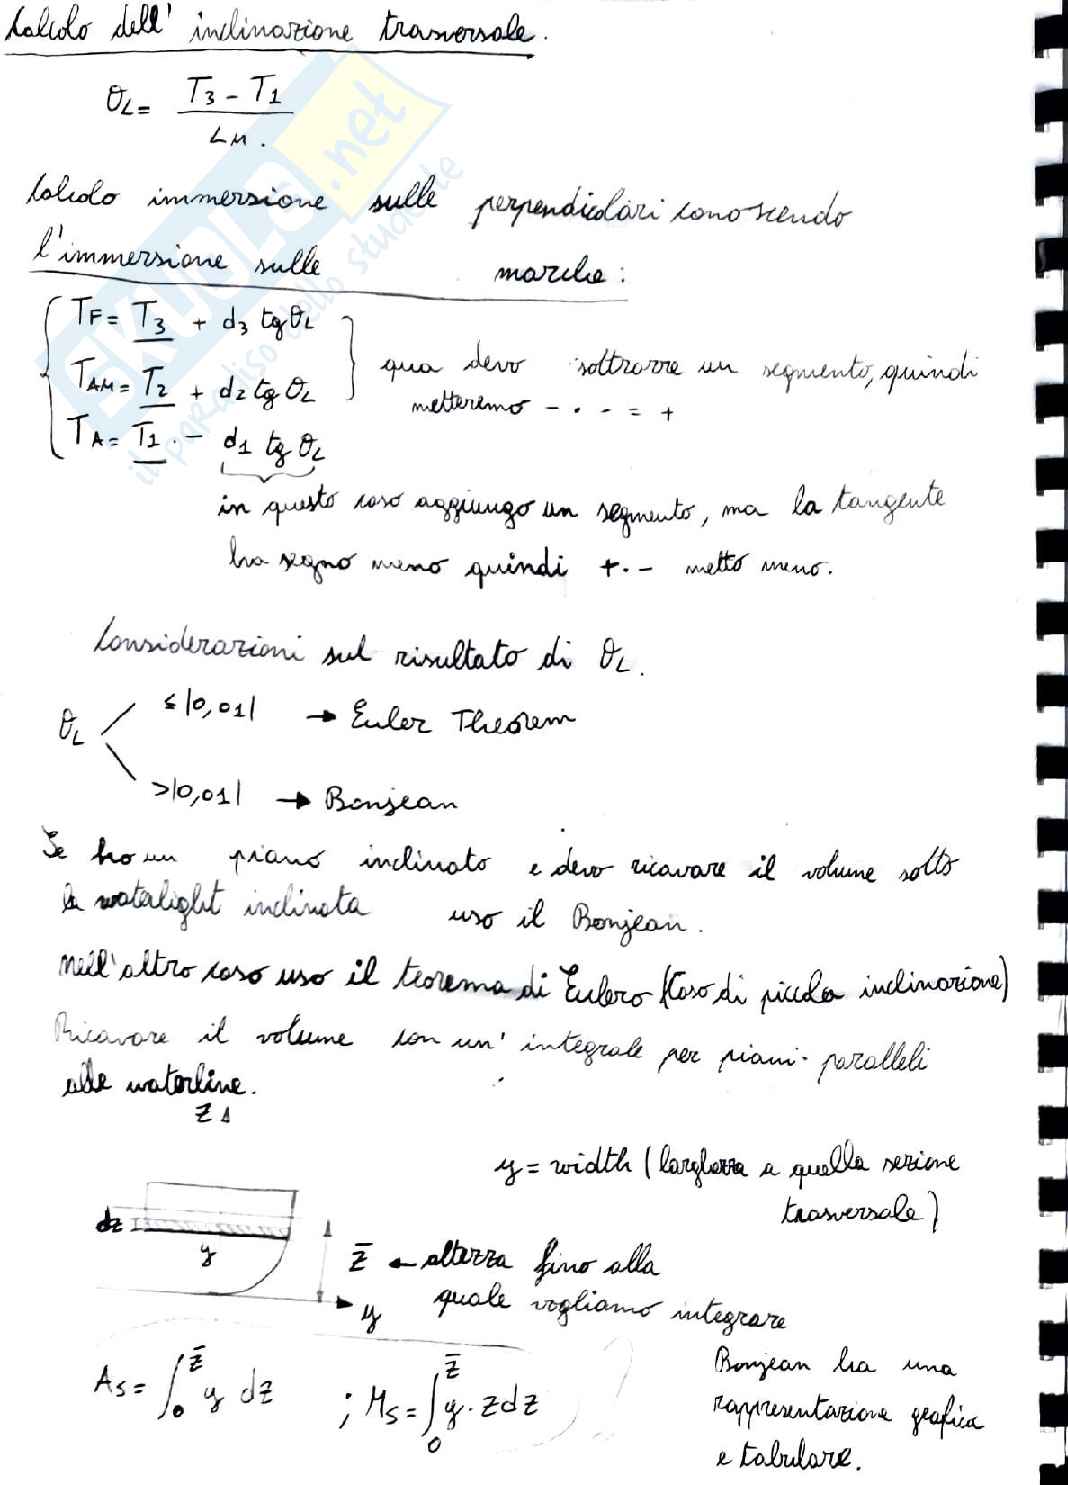 Calcolo dell' inclinazione trasversale.
θL = T3 - T1
LM.
Calcolo immersione sulle perpendicolari conoscendo
l'immersione sulle marche:
TF = T3 + d3 tgθL
TAM = T2 + d2 tgθL
TA = T1 · - d1 tgθL
qua devo sottrarre un segmento, quindi
metteremo - · - = +
in questo caso aggiungo un segmento, ma la tangente
ha segno meno quindi + · - metto meno.
Considerazioni sul risultato di θL.
θL
≤ |0,01| → Euler Theorem
>|0,01| → Bonjean
Se ho un piano inclinato e devo ricavare il volume sotto
la waterlight inclinata uso il Bonjean.
Nell'altro caso uso il teorema di Eulero (Caso di piccola inclinazione)
Ricavare il volume con un' integrale per piani paralleli
alle waterline.
z
y = width (larghezza a quella sezione
trasversale)
dz
y
z̄ ← altezza fino alla
quale vogliamo integrare
y
As = ∫0 z̄ y dz ; Ms = ∫0 z̄ y · z dz
Bonjean ha una
rappresentazione grafica
e tabulare.
SKUOLA.net
il paradiso dello studente